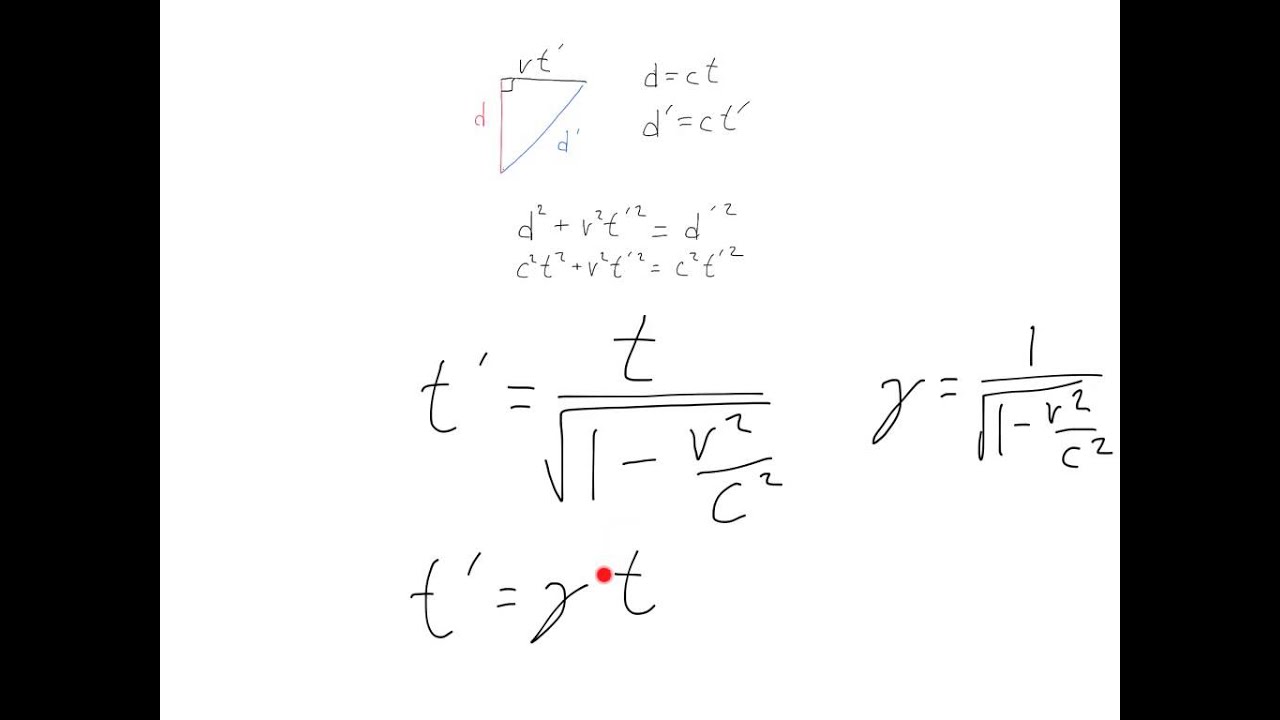 vt′
d
d′
d = ct
d′ = ct′
d² + v²t′² = d′²
c²t² + v²t′² = c²t′²
t′ = t / √(1 − v²/c²)
γ = 1 / √(1 − v²/c²)
t′ = γt